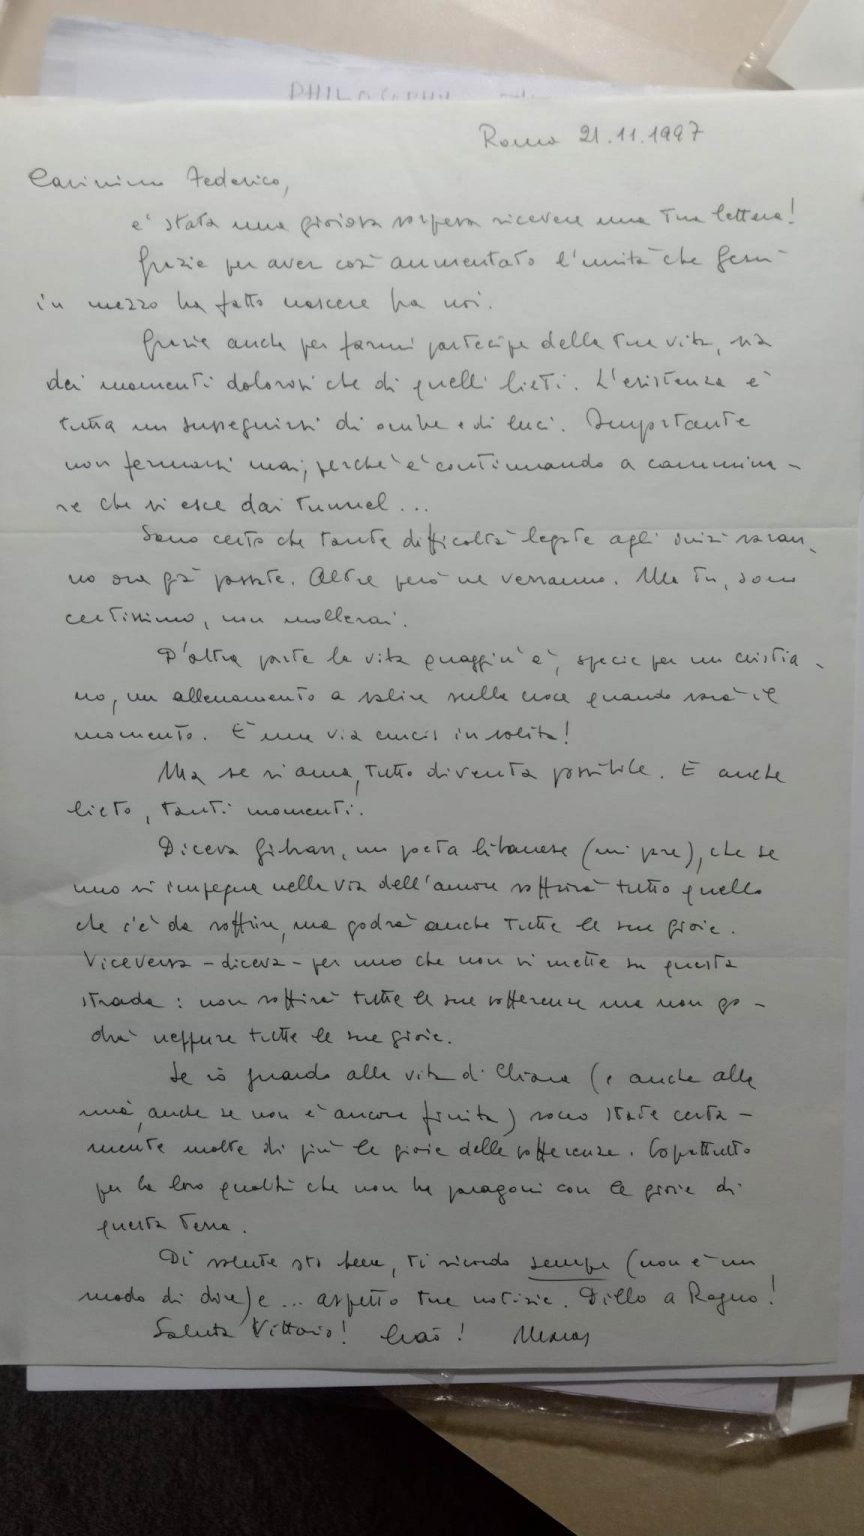 PHILOSOPHY
Roma 21.11.1997
Carissimo Federico,
e' stata una gioiosa sorpresa ricevere una tua lettera!
Grazie per aver così aumentato l'unità che Gesù
in mezzo ha fatto nascere fra noi.
Grazie anche per farmi partecipe della tua vita, sia
dei momenti dolorosi che di quelli lieti. L'esistenza è
tutta un susseguirsi di ombre e di luci. Importante
non fermarsi mai, perchè è continuando a cammina-
re che si esce dai tunnel...
Sono certo che tante difficoltà legate agli inizi saran-
no ora già passate. Altre però ne verranno. Ma tu, sono
certissimo, non mollerai.
D'altra parte la vita quaggiù è, specie per un cristia-
no, un allenamento a salire sulla croce quando sarà il
momento. È una via crucis insolita!
Ma se si ama, tutto diventa possibile. E anche
lieto, tanti momenti.
Diceva Gibran, un poeta libanese (mi pare), che se
uno si impegna nella via dell'amore soffrirà tutto quello
che c'è da soffrire, ma godrà anche tutte le sue gioie.
Viceversa - diceva - per uno che non si mette su questa
strada: non soffrirà tutte le sue sofferenze ma non go-
drà neppure tutte le sue gioie.
Se io guardo alla vita di Chiara (e anche alla
mia, anche se non è ancora finita) sono state certa-
mente molte di più le gioie delle sofferenze. Soprattutto
per la loro qualità che non ha paragoni con le gioie di
questa terra.
Di salute sto bene, ti ricordo sempre (non è un
modo di dire) e ... aspetto tue notizie. Dillo a
Saluta Vittorio! Ciao!